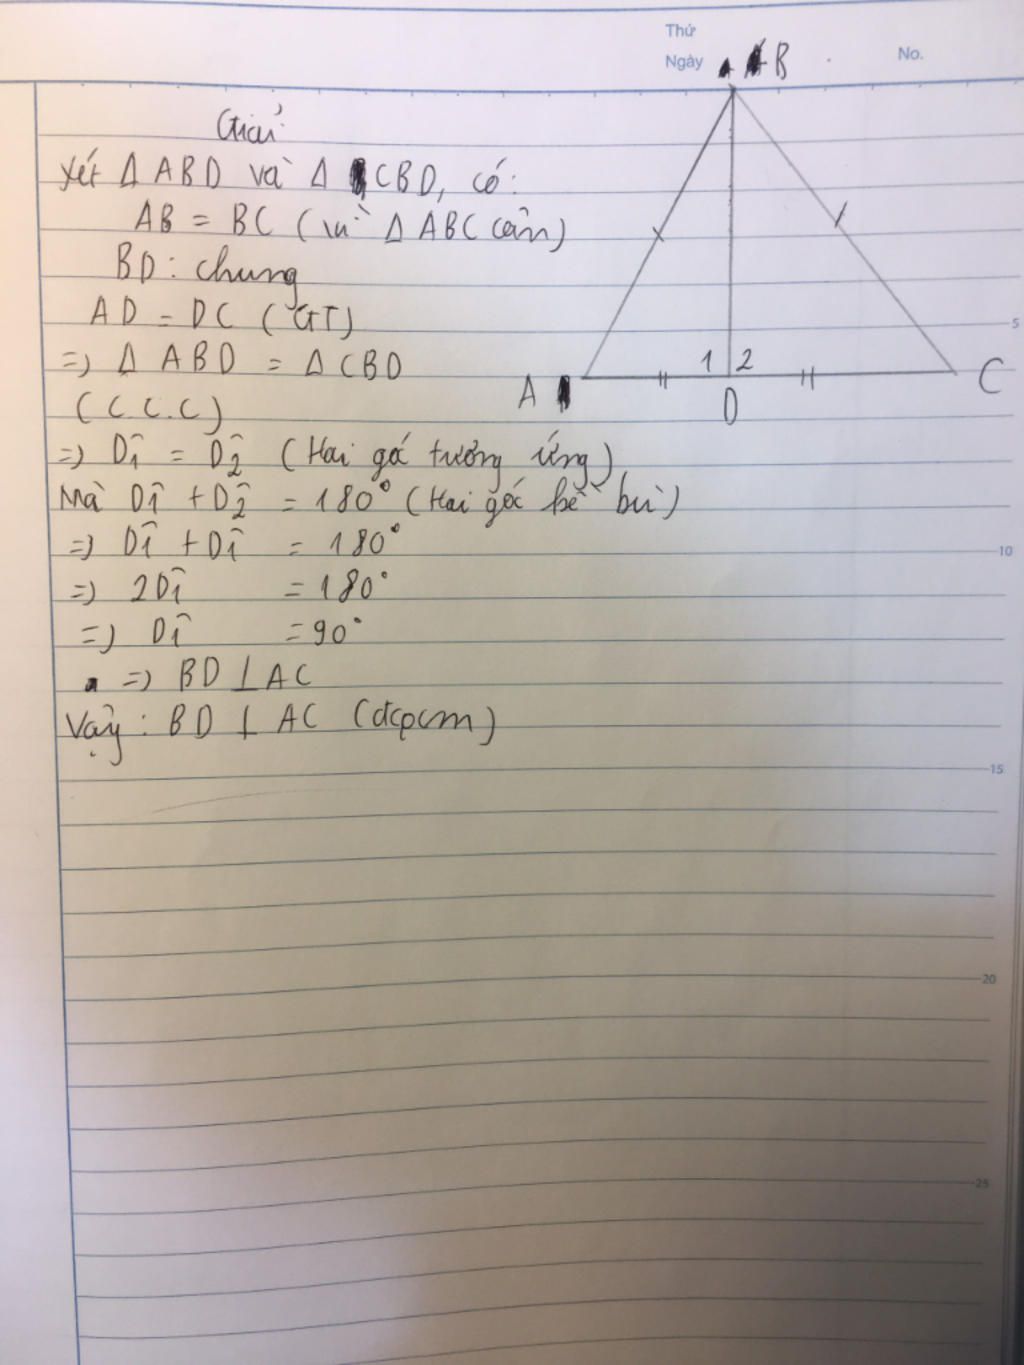 Thứ
Ngày
No.
B
Giải
Xét Δ ABD và Δ CBD, có:
AB = BC (vì Δ ABC cân)
BD: chung
AD = DC (GT)
=> Δ ABD = Δ CBD
(C.C.C)
=> D̂1 = D̂2 (Hai góc tương ứng)
Mà D̂1 + D̂2 = 180° (Hai góc kề bù)
=> D̂1 + D̂1 = 180°
=> 2D̂1 = 180°
=> D̂1 = 90°
=> BD ⊥ AC
Vậy: BD ⊥ AC (đcpcm)
1 2
A
D
C
5
10
15
20
25